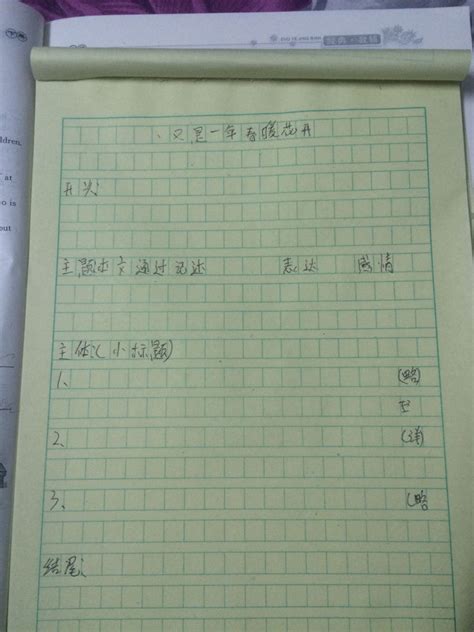 又是一年春暖花开
ldren.
at
o is
out
开头:
主题:本文通过记述 表达 感情
主体:(小标题)
1、 (略)
2、
3、 (略
结尾: